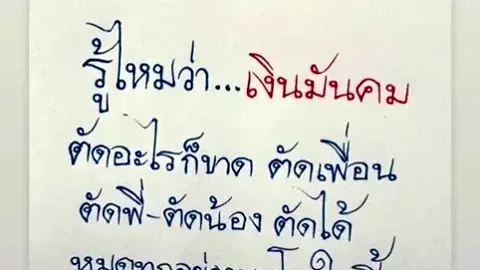 รู้ไหมว่า...เงินมันคม
ตัดอะไรก็ขาด ตัดเพื่อน
ตัดพี่-ตัดน้อง ตัดได้